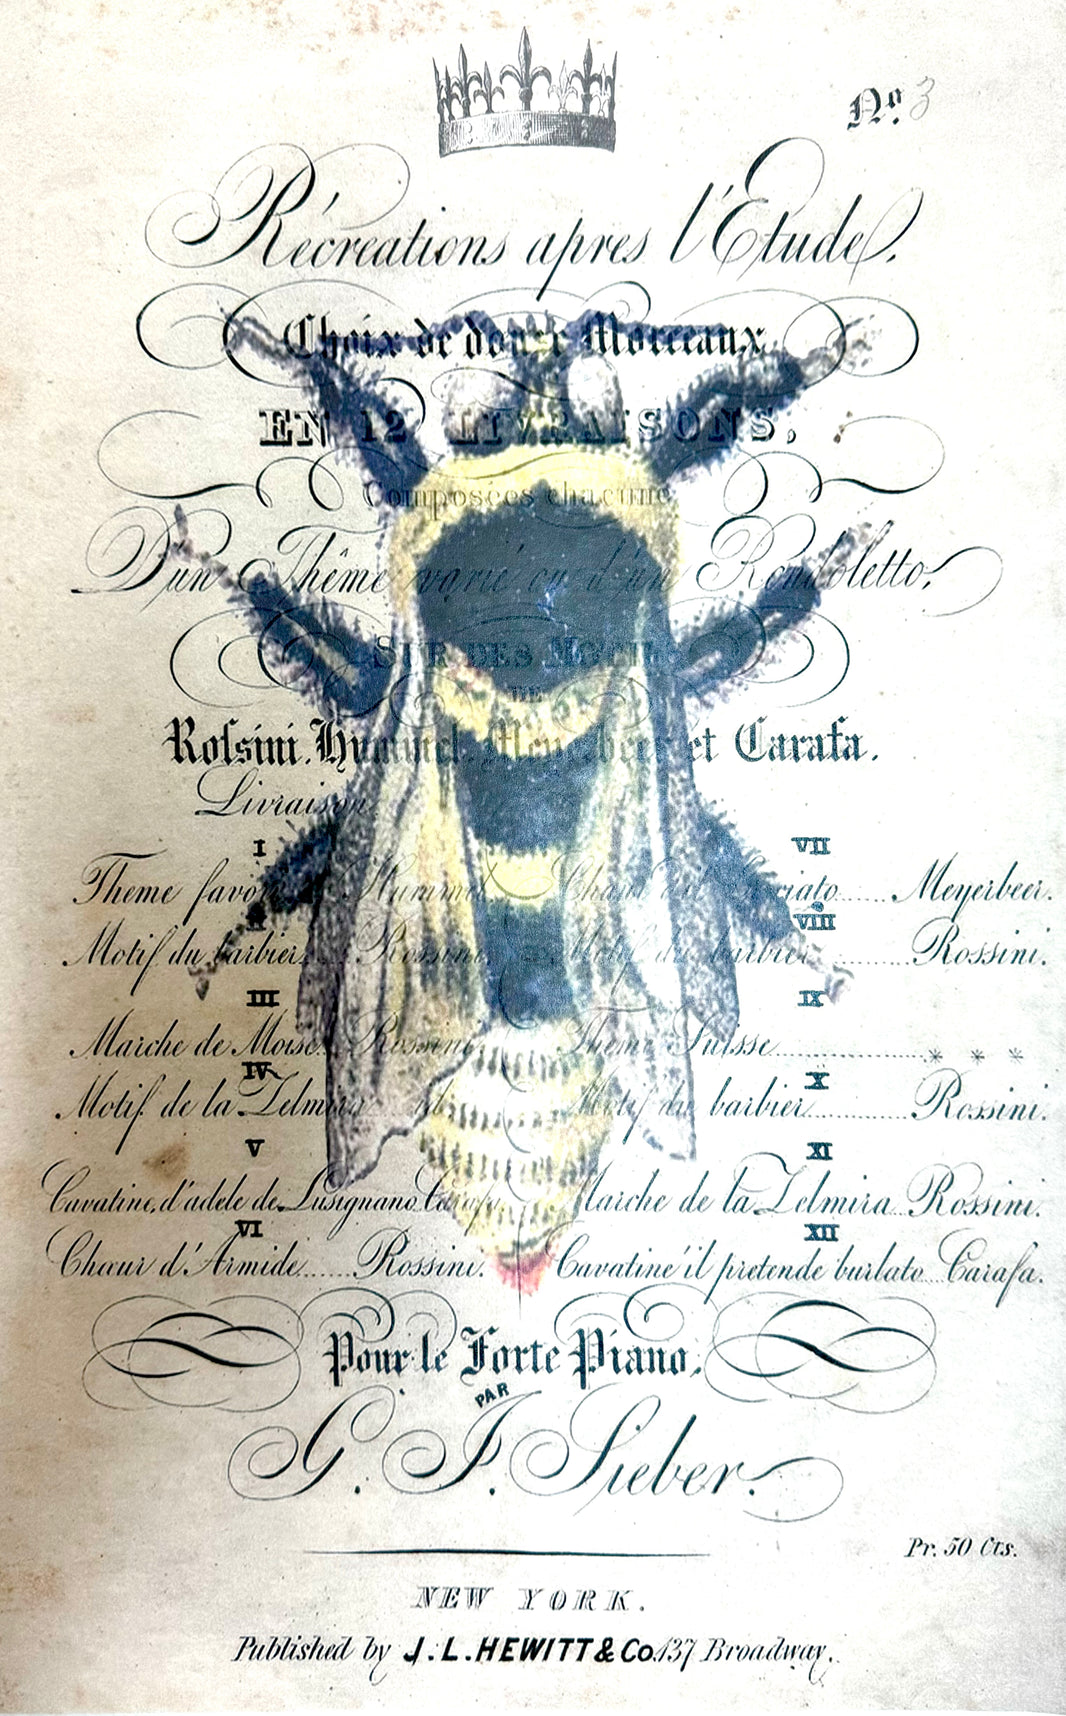 No. 3
Récreations apres l'Etude.
Choix de douze Morceaux
EN 12 LIVRAISONS,
Composées chacune
D'un Thême varié ou d'un Rondoletto,
SUR DES MOTIFS
DE
Rossini. Hummel. Meyerbeer et Carafa.
Livraison
I
Theme favori Hummel
II
Motif du barbier Rossini.
III
Marche de Moise. Rossini.
IV
Motif de la Zelmira id
V
Cavatine d'adele de Lusignano Carafa.
VI
Chœur d'Armide...... Rossini.
VII
Chant del Crociato...... Meyerbeer.
VIII
Motif du barbier ......... Rossini.
IX
Theme Suisse .................. * * *
X
Motif du barbier ............ Rossini.
XI
Marche de la Zelmira Rossini.
XII
Cavatine il pretende burlato Carafa.
Pour le Forte Piano,
PAR
G. J. Sieber.
Pr. 50 Cts.
NEW YORK.
Published by J. L. HEWITT & Co. 137 Broadway.